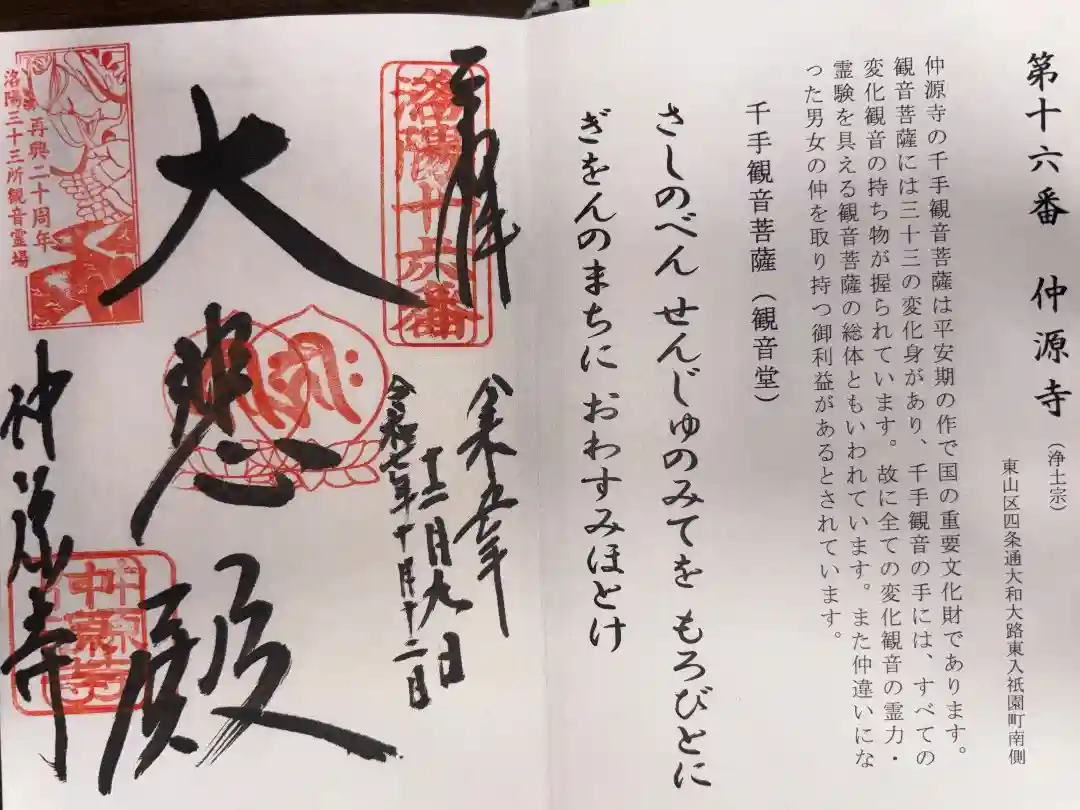 第十六番 仲源寺(浄土宗)
東山区四条通大和大路東入祇園町南側
仲源寺の千手観音菩薩は平安期の作で国の重要文化財であります。
観音菩薩には三十三の変化身があり、千手観音の手には、すべての
変化観音の持ち物が握られています。故に全ての変化観音の霊力・
霊験を具える観音菩薩の総体ともいわれています。また仲違いにな
った男女の仲を取り持つ御利益があるとされています。
千手観音菩薩(観音堂)
さしのべん せんじゅのみてを もろびとに
ぎをんのまちに おわすみほとけ
奉拝
洛陽十六番
令和五年
十二月九日
令和七年十月十二日
大悲殿
仲源寺
再興二十周年
洛陽三十三所観音霊場